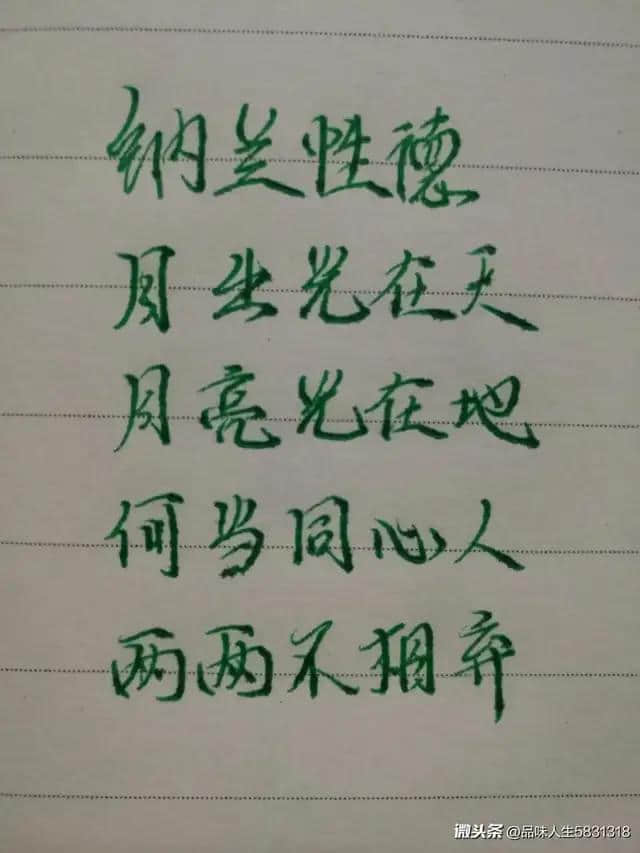 纳兰性德
月出光在天
月亮光在地
何当同心人
两两不相弃
微头条 @品味人生5831318